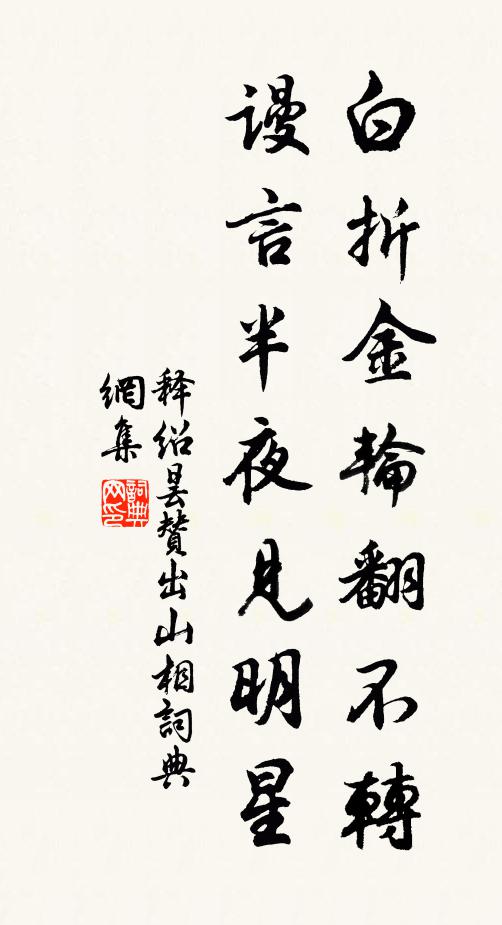 白折金輪翻不轉
謾言半夜見明星
释绍曇賛出山相詞典
網集
詞典
网印